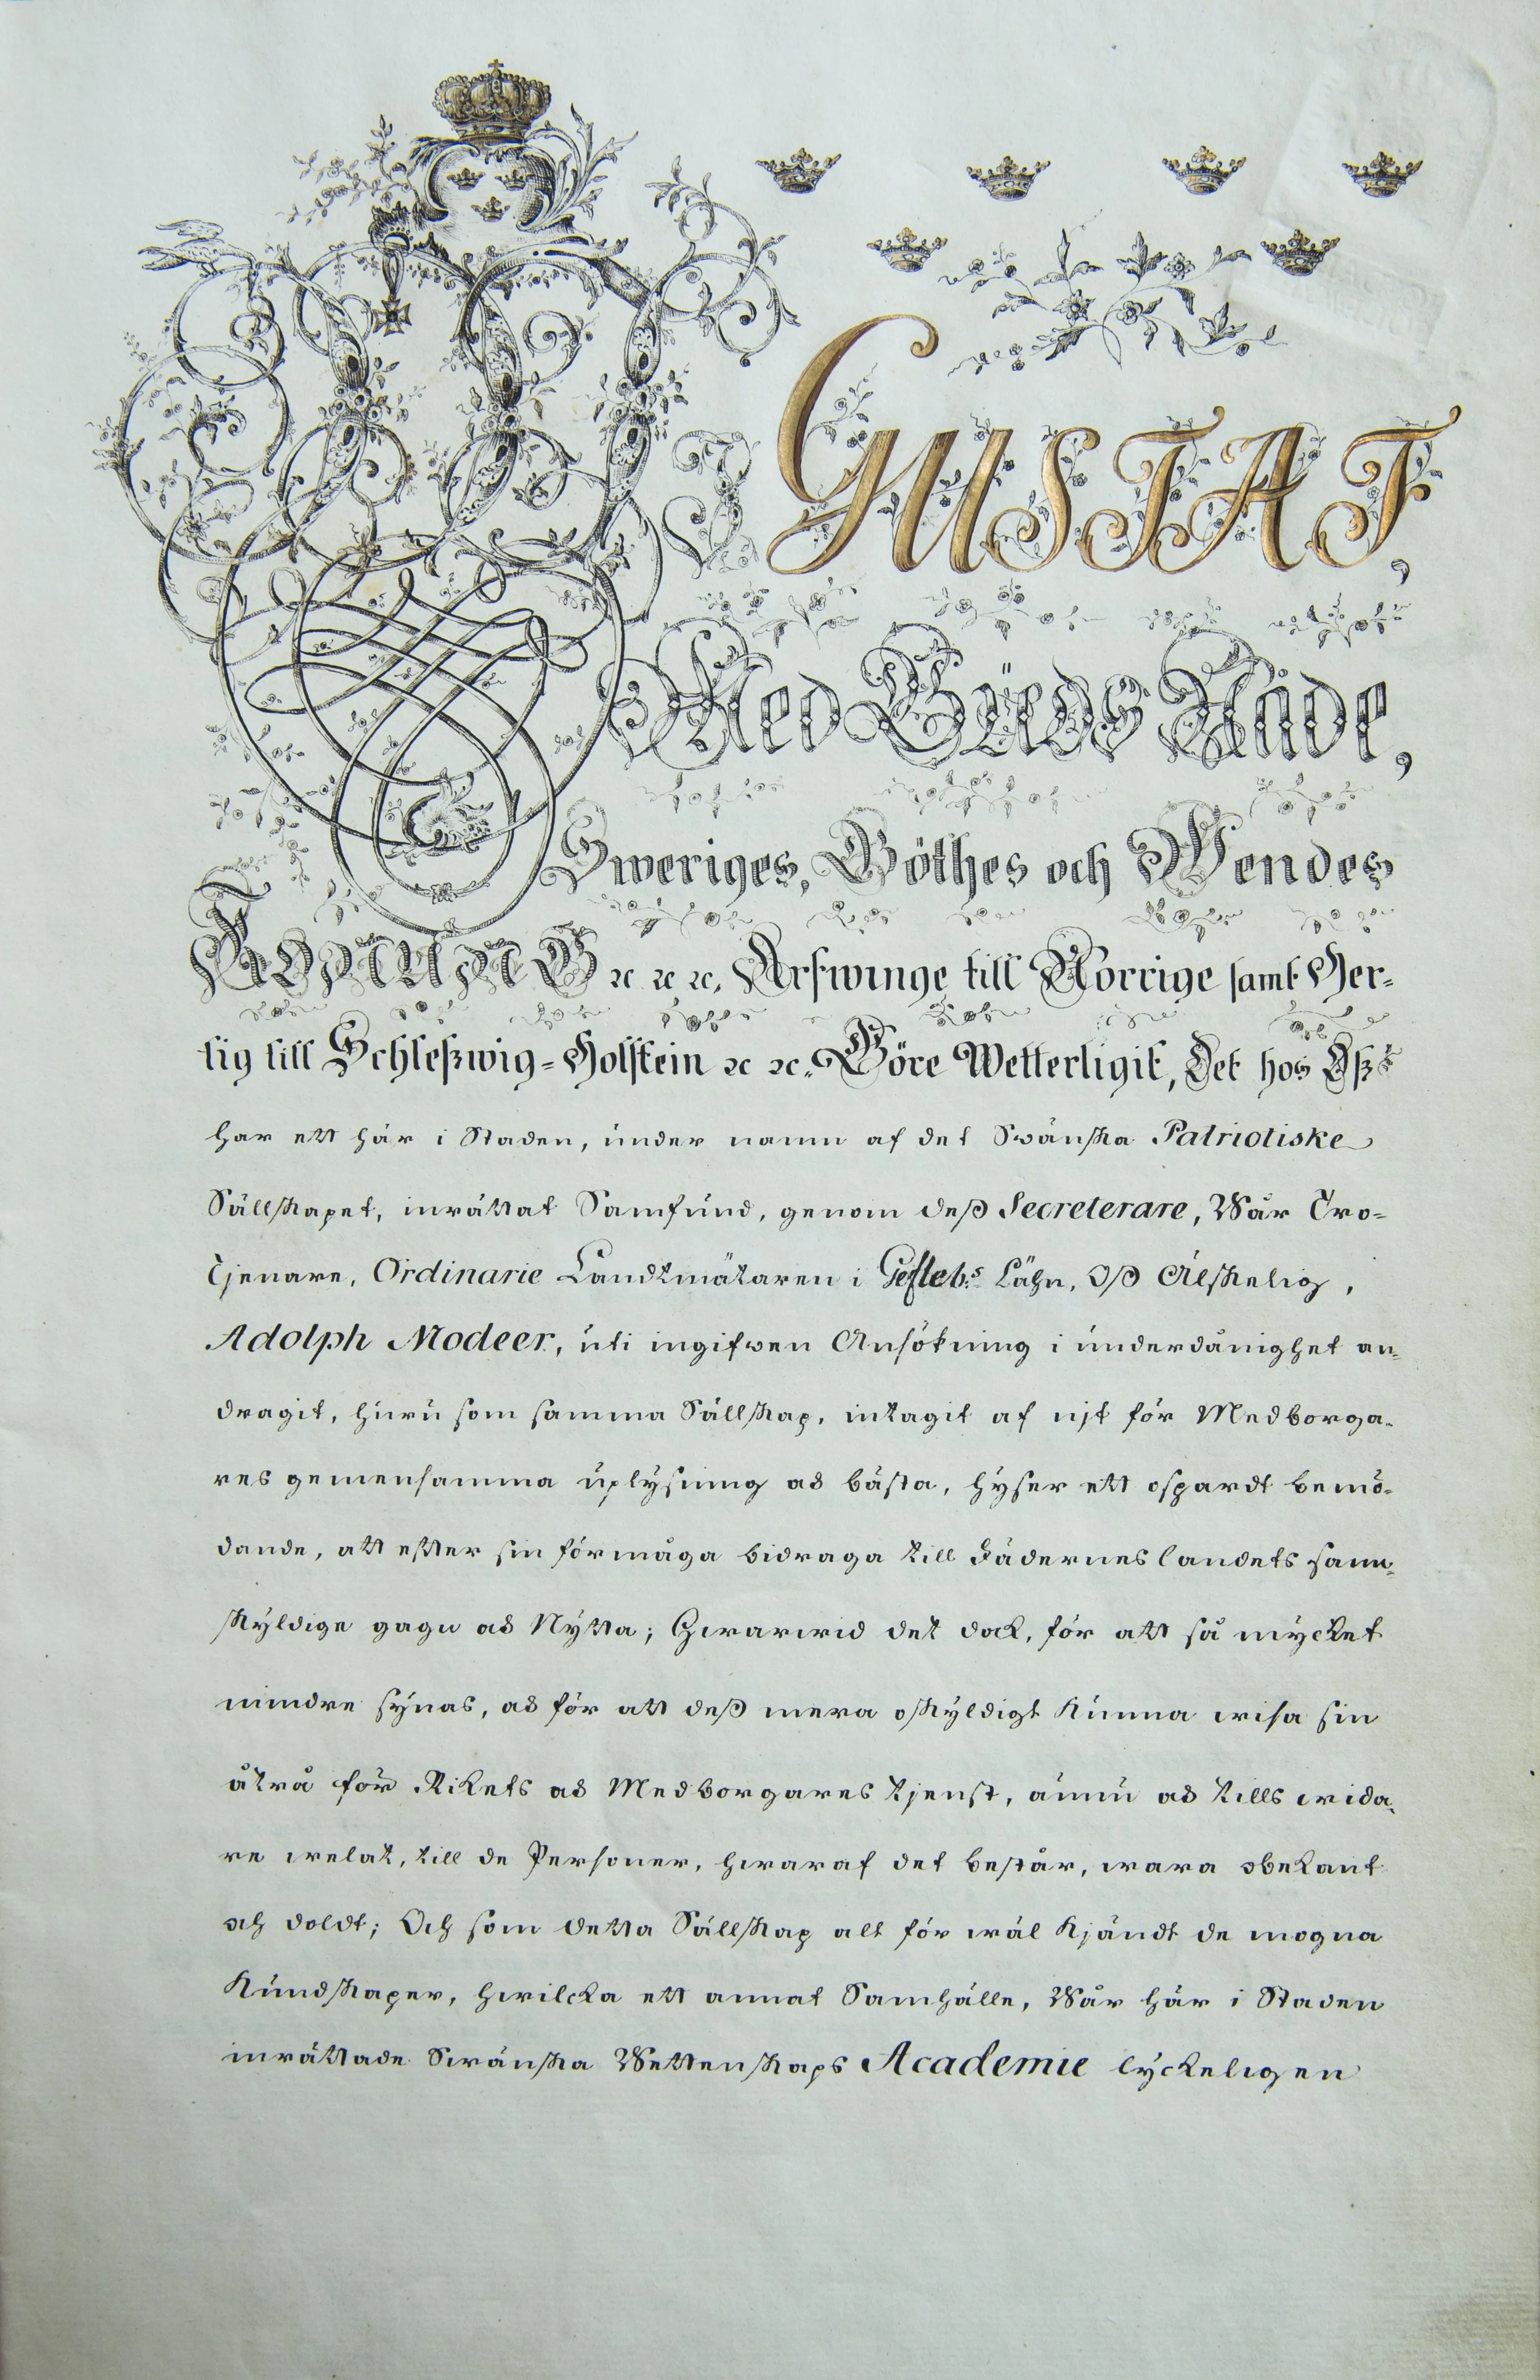 Wi GUSTAF,
Med Guds Nåde,
Sweriges, Göthes och Wendes
KONUNG ꝛc ꝛc ꝛc, Arfwinge till Norrige samt Her=
tig till Schleßwig=Holstein ꝛc ꝛc. Göre Wetterligit, Det hos Oß
har ett här i Staden, under namn af det Swänska Patriotiske
Sällskapet, inrättat Samfund, genom deß Secreterare, Wår Tro=
Tjenare, Ordinarie Landtmätaren i Gefleb:s Lähn, Oß Älskelig,
Adolph Modeer, uti ingifwen Ansökning i underdånighet an=
dragit, huru som samma Sällskap, intagit af nit för Medborga=
res gemensamma uplysning och bästa, hyser ett ospardt bemö=
dande, att efter sin förmåga bidraga till Fäderneslandets sann=
skyldige gagn och Nytta; Hwarwid det dock, för att så mycket
mindre synas, och för att deß mera oskyldigt kunna wisa sin
åtrå för Rikets och Medborgares tjenst, ännu och tills wida=
re welat, till de Personer, hwaraf det består, wara obekant
och doldt; Och som detta Sällskap alt för wäl kjändt de mogna
Kundskaper, hwilcka ett annat Samhälle, Wår här i Staden
inrättade Swänska Wettenskaps Academie lyckeligen